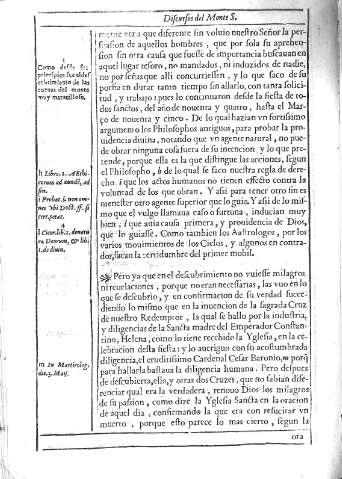 Discursos del Monte S.
mente ver a que diferente fin voluio nuestro Señor la per
suasion de aquellos hombres, que por sola su aprehen-
sion sin otra causa que fuesse de importancia buscauan en
aquel lugar tesoro, no mandados, ni induzidos de nadie,
no por señas que alli concurriessen, y lo que saco de su
porfia en durar tanto tiempo sin allarlo, con tanta solici-
tud, y trabajo; pues lo continuaron desde la fiesta de to-
dos sanctos, del año de nouenta y quatro, hasta el Mar-
ço de nouenta y cinco. De lo qual hazian vn fortissimo
argumento los Philosophos antiguos, para probar la pro-
uidencia diuina, notando que vn agente natural, no pue-
de obrar ninguna cosa fuera de su intencion y lo que pre-
tende, porque ella es la que distingue las acciones, segun
el Philosopho, h de lo qual se saco nuestra regla de dere-
cho, i que los actos humanos no tienen effecto contra la
voluntad de los que obran. Y assi para tener otro fin es
menester otro agente superior que lo guie. Y assi de lo mis-
mo que el vulgo llamaua caso o fortuna, inducian muy
bien; que auia causa primera, y prouidencia de Dios,
que lo guiasse. Como tambien los Astrologos, por los
varios mouimientos de los Cielos, y algunos en contra-
dos, sacan la certidumbre del primer mobil.
Pero ya que en el descubrimiento no vuiesse milagros
ni reuelaciones, porque no eran necessarias, las vuo en lo
que se descubrio, y en confirmacion de su verdad succe-
diendo lo mismo que en la inuencion de la sagrada Cruz
de nuestro Redemptor, la qual se hallo por la industria,
y diligencias de la Sancta madre del Emperador Constan-
tino, Helena, como lo tiene recebido la Yglesia, en la ce-
lebracion desta fiesta; y lo auerigua con su acostumbrada
diligencia, el eruditissimo Cardenal Cesar Baronio, m porq̃
para hallarla bastaua la diligencia humana. Pero despues
de descubierta, ella, y otras dos Cruzes, que no sabian dife-
renciar qual era la verdadera, renouo Dios los milagros
de su passion, como dize la Yglesia Sancta en la oracion
de aquel dia, confirmando la que era con resucitar vn
muerto, porque esto parece lo mas cierto, segun la
ora
Como desde sus
principios fue el des
cubrimiento de las
cueuas del monte
muy marauilloso.
h Libro. 2. Ethi
corum
i
l
m In Martirolog.
die. 3. Maij.